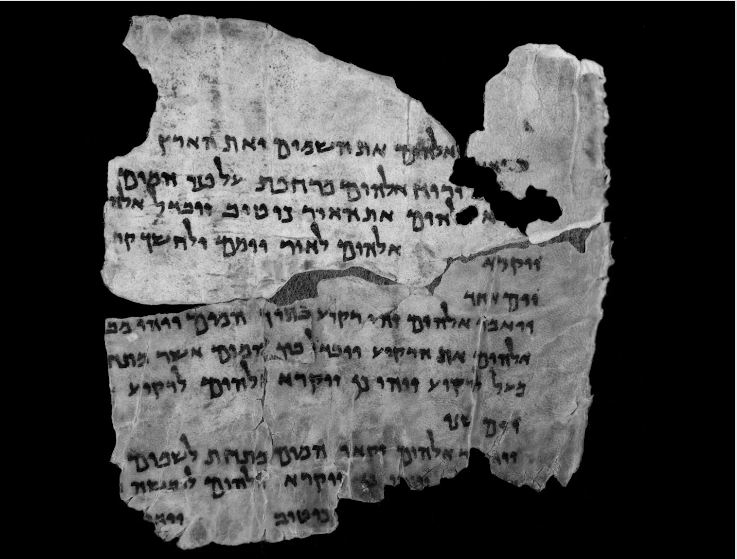 אלהים את השמים ואת הארץ
ורוח אלהים מרחפת על פני המים
אלהים את האור כי טוב ויבדל אלהי
ויקרא אלהים לאור יומם ולחשך קר
יום אחד
ויאמר אלהים יהי רקיע בתוך המים ויהי מב
אלהים את הרקיע ויבדל בין המים אשר מתח
מעל לרקיע ויהי כן ויקרא אלהים לרקיע
יום שני
ויאמר אלהים יקאו המים מתחת לשמים
כן ויקרא אלהים ליבשה
כי טוב ויאמ